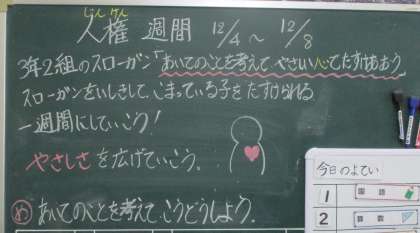 じんけん
人権 週間 12/4~12/8
3年2組のスローガン「あいてのことを考えて、やさしい心でたすけあおう」
スローガンをいしきして、こまっている子をたすけられる
一週間にしていこう!
やさしさを広げていこう。
め あいてのことを考えて、こうどうしよう。
今日のよてい
1 国語
2 算数